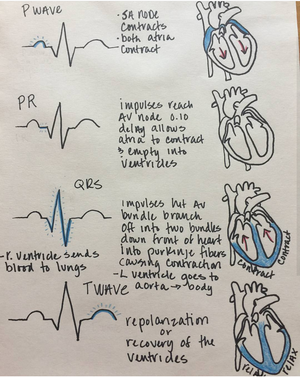 P WAVE
· SA NODE
contracts
· both atria
contract
PR
impulses reach
AV node 0.10
delay allows
atria to contract
& empty into
ventricles
QRS
impulses hit AV
bundle branch
off into two bundles
down front of heart
into purkinje fibers
causing contraction
-r. ventricle sends
blood to lungs
-L ventricle goes to
aorta → body
contract
contract
T WAVE
repolarization
or
recovery of the
ventricles
relax
relax